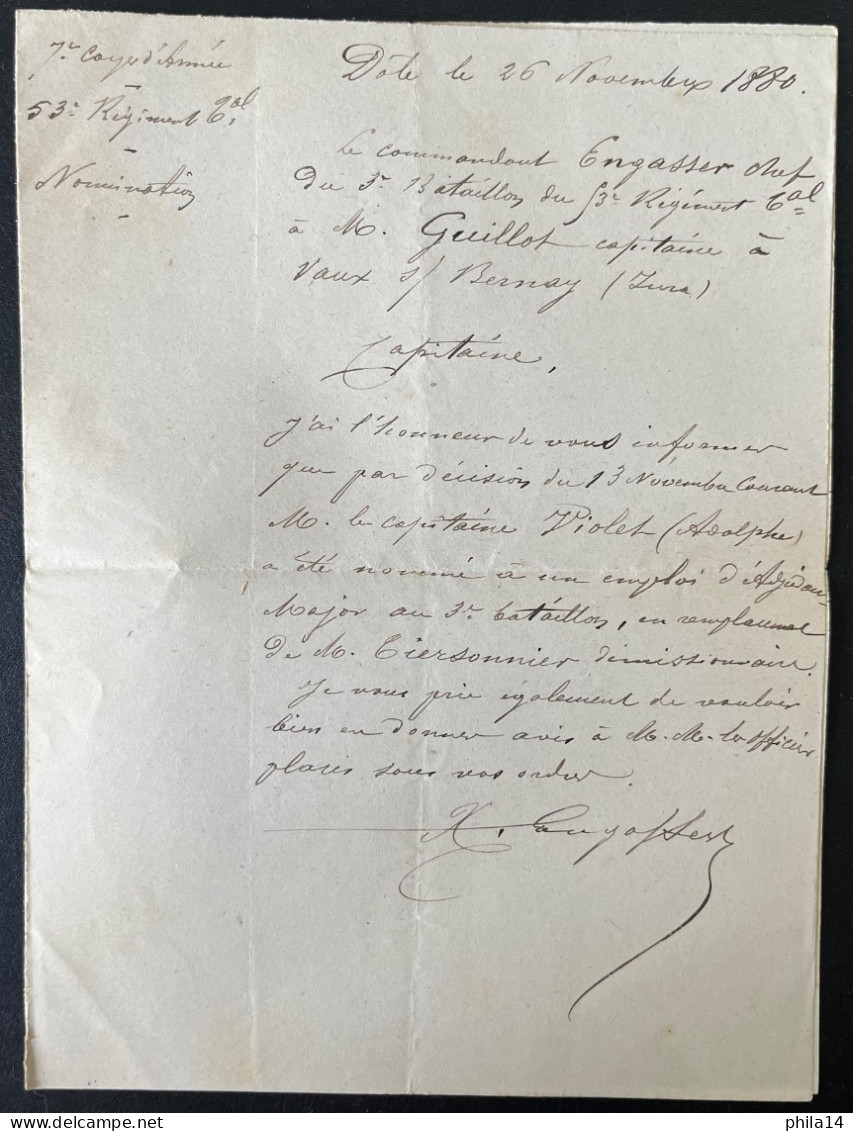 7e corps d'Armée
53e Régiment tal
Nomination
Dôle le 26 Novembre 1880.
Le commandant Engasser chef
du 3e Bataillon du 53e Régiment tal
à M. Guillot capitaine à
Vaux s/ Bernay (Jura)
Capitaine,
J'ai l'honneur de vous informer
que par décision du 13 Novembre Courant
M. le capitaine Violet (Adolphe)
a été nommé à un emploi d'Adjudant
Major au 3e bataillon, en remplacement
de M. Tiersonnier démissionnaire.
Je vous prie également de vouloir
bien en donner avis à M. M. les officiers
placés sous vos ordres.
X. Engasser
phila14